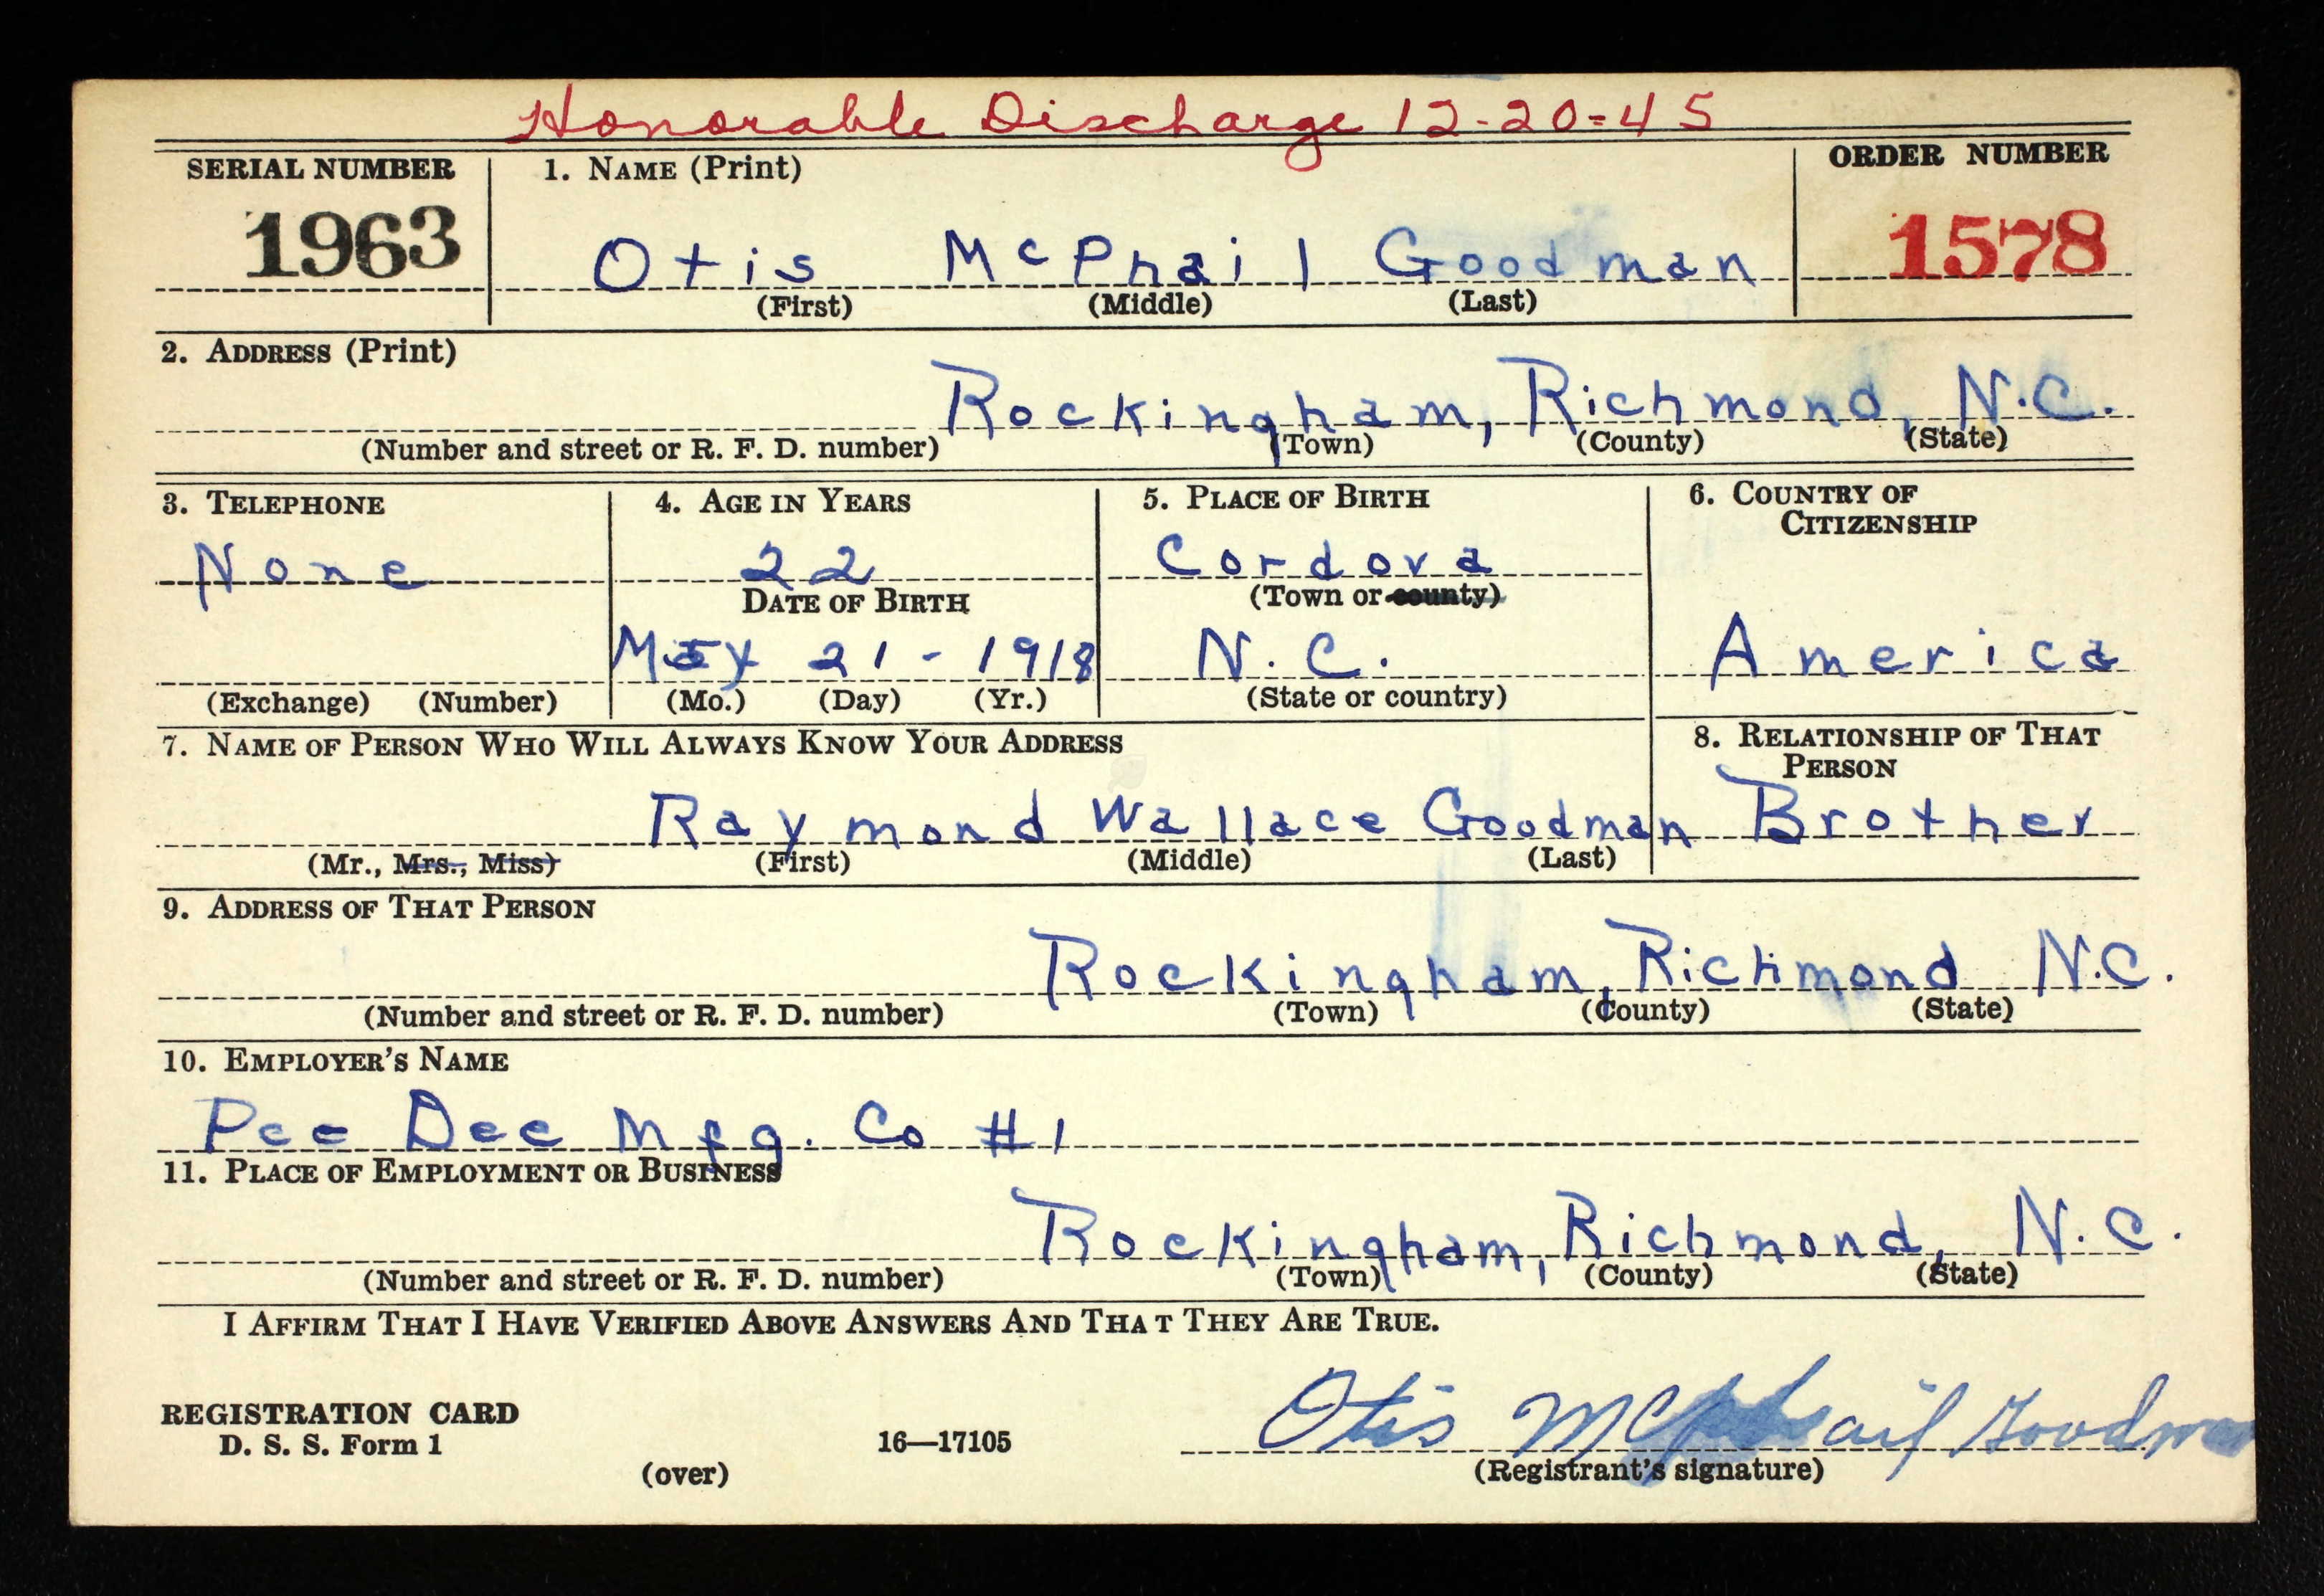 Honorable Discharge 12-20=45
SERIAL NUMBER 1. NAME (Print) ORDER NUMBER
1963 Otis McPhail Goodman 1578
(First) (Middle) (Last)
2. ADDRESS (Print)
Rockingham, Richmond, N.C.
(Number and street or R. F. D. number) (Town) (County) (State)
3. TELEPHONE 4. AGE IN YEARS 5. PLACE OF BIRTH 6. COUNTRY OF
CITIZENSHIP
None 22 Cordova
DATE OF BIRTH (Town or county)
May 21 - 1918 N.C. America
(Exchange) (Number) (Mo.) (Day) (Yr.) (State or country)
7. NAME OF PERSON WHO WILL ALWAYS KNOW YOUR ADDRESS 8. RELATIONSHIP OF THAT
PERSON
Raymond Wallace Goodman Brother
(Mr., Mrs., Miss) (First) (Middle) (Last)
9. ADDRESS OF THAT PERSON
Rockingham, Richmond N.C.
(Number and street or R. F. D. number) (Town) (County) (State)
10. EMPLOYER'S NAME
Pee Dee Mfg. Co #1
11. PLACE OF EMPLOYMENT OR BUSINESS
Rockingham, Richmond, N.C.
(Number and street or R. F. D. number) (Town) (County) (State)
I AFFIRM THAT I HAVE VERIFIED ABOVE ANSWERS AND THAT THEY ARE TRUE.
Otis McPhail Goodman
REGISTRATION CARD
D. S. S. Form 1 16—17105
(over) (Registrant's signature)